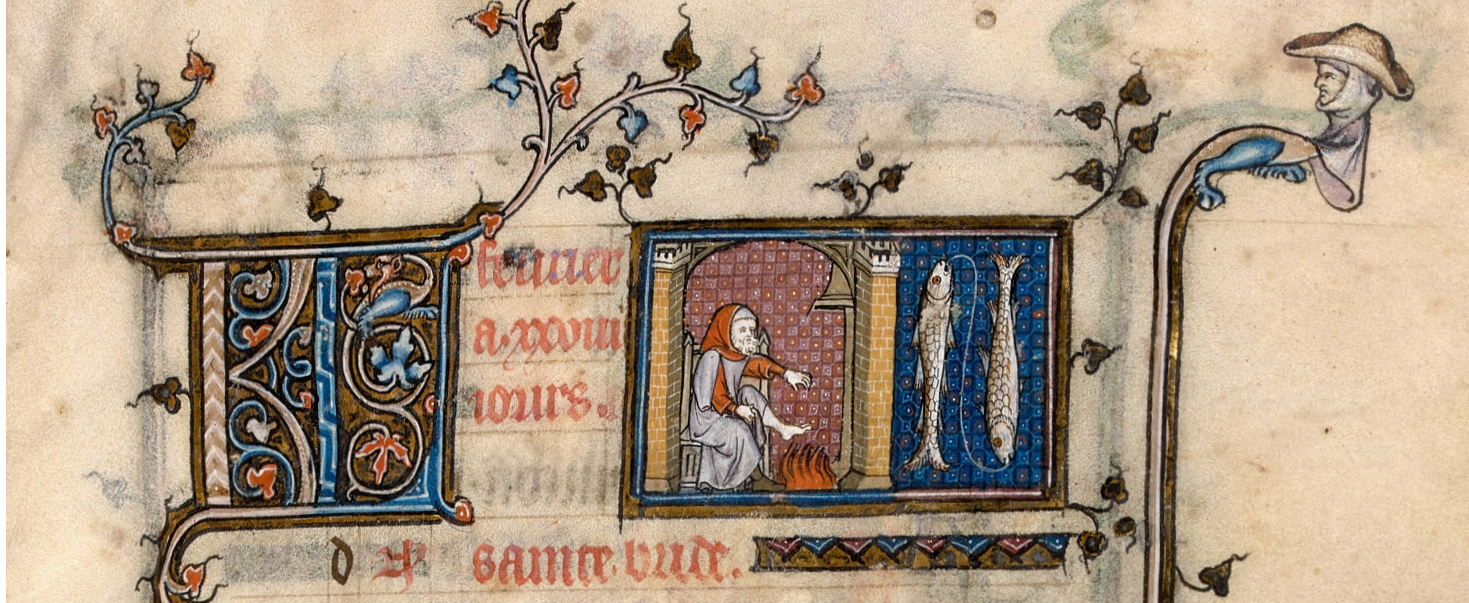 KL feurier
a.xxviii
iours.
d sainte bride.